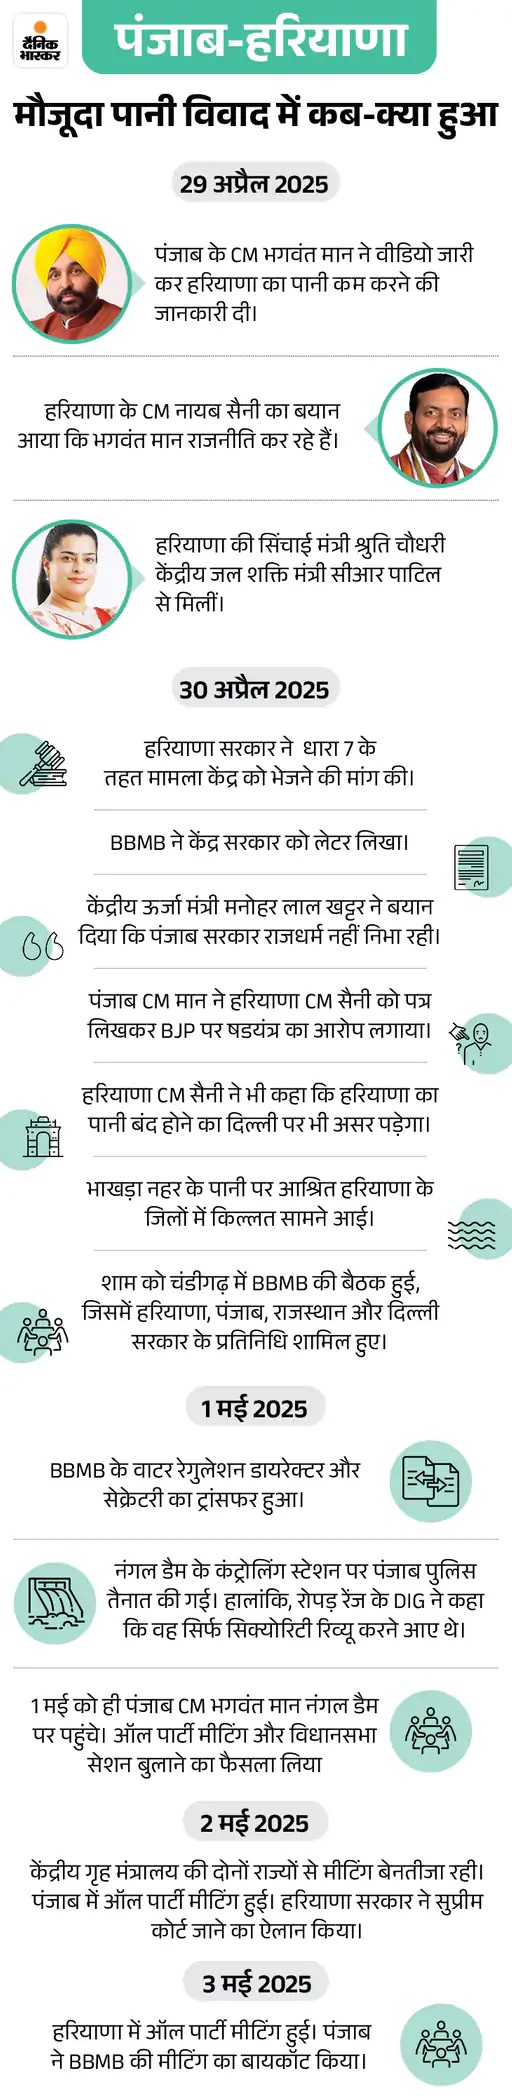 दैनिक
भास्कर
पंजाब-हरियाणा
मौजूदा पानी विवाद में कब-क्या हुआ
29 अप्रैल 2025
पंजाब के CM भगवंत मान ने वीडियो जारी
कर हरियाणा का पानी कम करने की
जानकारी दी।
हरियाणा के CM नायब सैनी का बयान
आया कि भगवंत मान राजनीति कर रहे हैं।
हरियाणा की सिंचाई मंत्री श्रुति चौधरी
केंद्रीय जल शक्ति मंत्री सीआर पाटिल
से मिलीं।
30 अप्रैल 2025
हरियाणा सरकार ने धारा 7 के
तहत मामला केंद्र को भेजने की मांग की।
BBMB ने केंद्र सरकार को लेटर लिखा।
केंद्रीय ऊर्जा मंत्री मनोहर लाल खट्टर ने बयान
दिया कि पंजाब सरकार राजधर्म नहीं निभा रही।
पंजाब CM मान ने हरियाणा CM सैनी को पत्र
लिखकर BJP पर षडयंत्र का आरोप लगाया।
हरियाणा CM सैनी ने भी कहा कि हरियाणा का
पानी बंद होने का दिल्ली पर भी असर पड़ेगा।
भाखड़ा नहर के पानी पर आश्रित हरियाणा के
जिलों में किल्लत सामने आई।
शाम को चंडीगढ़ में BBMB की बैठक हुई,
जिसमें हरियाणा, पंजाब, राजस्थान और दिल्ली
सरकार के प्रतिनिधि शामिल हुए।
1 मई 2025
BBMB के वाटर रेगुलेशन डायरेक्टर और
सेक्रेटरी का ट्रांसफर हुआ।
नंगल डैम के कंट्रोलिंग स्टेशन पर पंजाब पुलिस
तैनात की गई। हालांकि, रोपड़ रेंज के DIG ने कहा
कि वह सिर्फ सिक्योरिटी रिव्यू करने आए थे।
1 मई को ही पंजाब CM भगवंत मान नंगल डैम
पर पहुंचे। ऑल पार्टी मीटिंग और विधानसभा
सेशन बुलाने का फैसला लिया
2 मई 2025
केंद्रीय गृह मंत्रालय की दोनों राज्यों से मीटिंग बेनतीजा रही।
पंजाब में ऑल पार्टी मीटिंग हुई। हरियाणा सरकार ने सुप्रीम
कोर्ट जाने का ऐलान किया।
3 मई 2025
हरियाणा में ऑल पार्टी मीटिंग हुई। पंजाब
ने BBMB की मीटिंग का बायकॉट किया।